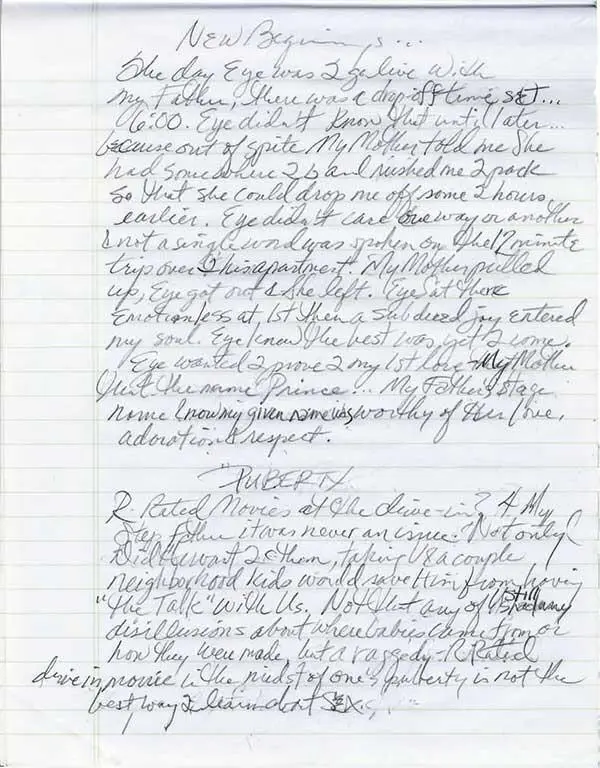 New Beginnings...
The day Eye was 2 go live with
my Father, there was a drop off time set...
6:00. Eye didn't know that until later...
because out of spite My Mother told me she
had somewhere 2 b and rushed me 2 pack
so that she could drop me off some 2 hours
earlier. Eye didn't care one way or another
& not a single word was spoken on the 12 minute
trip over 2 his apartment. My Mother pulled
up, Eye got out & she left. Eye sat there
emotionless at 1st then a subdued joy entered
my soul. Eye know the best was yet 2 come.
Eye wanted 2 prove 2 my 1st love - My Mother
that the name Prince... My Father's stage
name & now my given name was worthy of Her love,
adoration & respect.
"PUBERTY
R-Rated Movies at the drive-in? 4 My
Step father it was never an issue. Not only
did He want 2 c them, taking us & a couple
neighborhood kids would save Him from having
"the Talk" with Us. Not that any of us still had any
disillusions about where babies came from or
how they were made, but a raggedy R-Rated
drive in movie in the midst of one's puberty is not the
best way 2 learn about SEX.